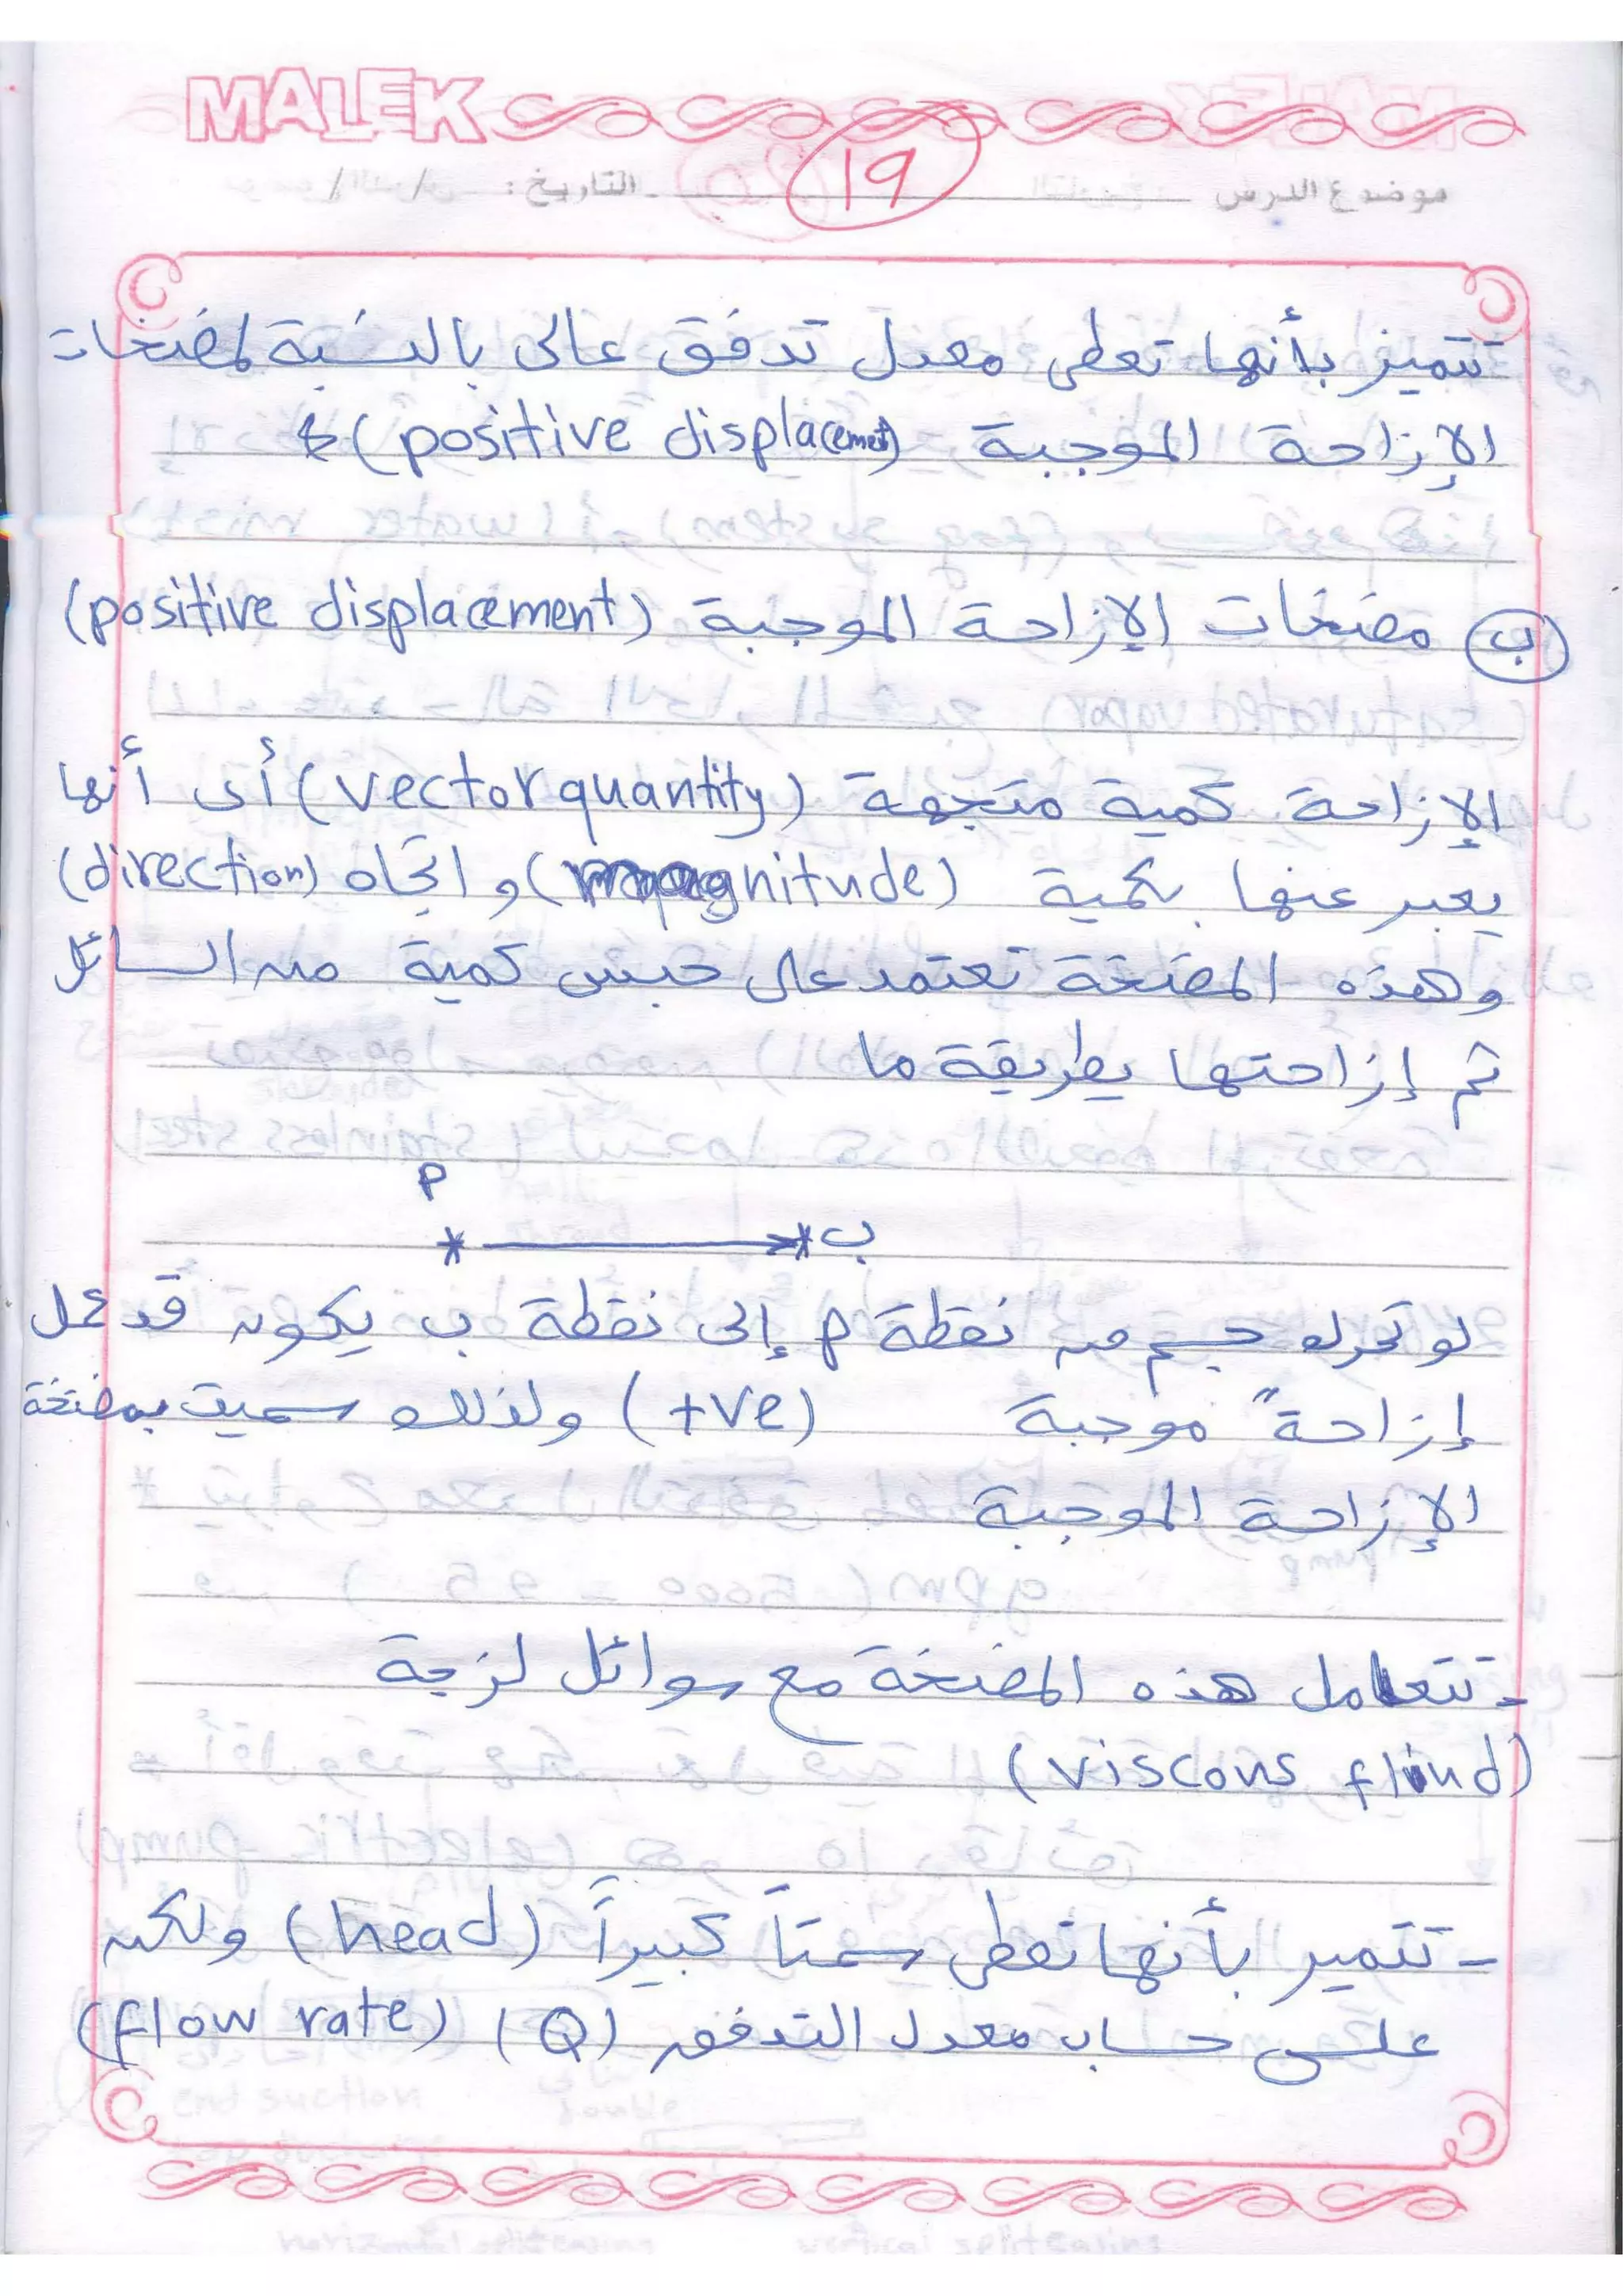 MALEK
موضوع الدرس
١٩
التاريخ: / /
تتميز بأنها تعطى معدل تدفق عالى بالنسبة لمضخات
الإزاحة الموجبة (positive displacemet)
ب مضخات الإزاحة الموجبة (positive displacement)
الإزاحة كمية متجهة (vector quantity) أى أنها
يعبر عنها بكمية (magnitude) و اتجاه (direction)
وهذه المضخة تعتمد على حبس كمية من السائل
ثم إزاحتها بطريقة ما
أ
ب
لو تحرك جسم من نقطة أ إلى نقطة ب يكون قد عمل
إزاحةً موجبة (+ve) ولذلك سميت بمضخة
الإزاحة الموجبة
- تتعامل هذه المضخة مع سوائل لزجة
(viscous fluid)
- تتميز بأنها تعطى سمتاً كبيراً (head) ولكن
على حساب معدل التدفق (Q) (flow rate)